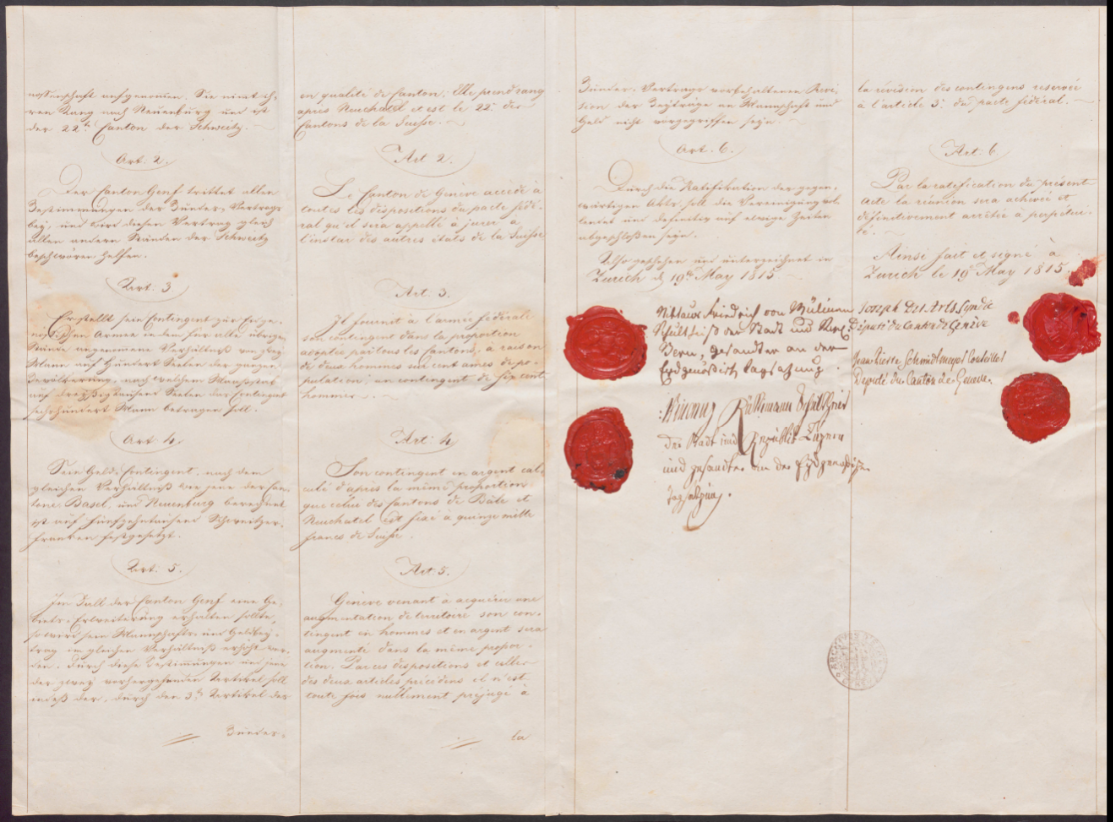 nossenschaft aufgenommen. Sie nimt ih-
ren Rang nach Neuenburg und ist
der 22te Canton der Schweitz.
Art. 2.
Der Canton Genf trittet allen
Bestimmungen des Bundes-Vertrags
bey, und wird diesen Vertrag gleich
allen andern Ständen der Schweitz
beschwören helfen.
Art. 3
Er stellt sein Contingent zur Eidge-
nössischen Armee nach der für alle übrige
Stände angenommene Verhältniß von zwey
Mann auf Hundert Seelen der ganzen
Bevölkerung, nach welchem Maasstab
Seelen das Contingent
sechshundert Mann betragen soll.
Art. 4.
Sein Geld-Contingent, nach dem
gleichen Verhältniß wie jene der Can-
tone Basel und Neuenburg berechnet
ist auf fünfzehntausend Schweitzer-
franken festgesetzt.
Art. 5.
Im Fall der Canton Genf eine Ge-
biets-Erweiterung erhalten sollte,
so wird sein Mannschafts- und Geldbey-
trag im gleichen Verhältniß erhöht wer-
den. Durch diese Bestimmungen und jene
der zwey vorhergehenden Artikel soll
indeß der, durch den 3ten Artikel des
Bundes-
en qualité de Canton; Elle prend rang
après Neuchatel et est le 22e des
Cantons de la Suisse.
Art 2.
Le Canton de Genève accède à
toutes les dispositions du pacte fédé-
ral qu'il sera appellé à jurer à
l'instar des autres états de la Suisse
Art. 3.
Il fournit à l'armée fédérale
son contingent dans la proportion
adoptée pour tous les Cantons, à raison
de deux hommes sur cent ames de po-
pulation; un contingent de six cent
hommes.
Art. 4
Son contingent en argent cal-
culé d'après la même proportion
que celui des Cantons de Bâle et
Neuchatel est fixé à quinze mille
francs de Suisse.
Art 5.
Genève venant à acquérir une
augmentation de territoire son con-
tingent en hommes et en argent sera
augmenté dans la même propor-
tion. Par ces dispositions et celles
des deux articles précédens il n'est
toute fois nullement préjugé à
la
Bundes-Vertrags vorbehaltenen Revi-
sion der Beyträge an Mannschaft und
Geld nicht vorgegriffen seyn.
Art. 6.
Durch die Ratifikation der gegen-
wärtigen Akte soll die Vereinigung vol-
lendet und definitiv auf ewige Zeiten
abgeschlossen seyn.
Also geschehen und unterzeichnet in
Zurich d. 19ten May 1815.
Niklaus Friedrich von Mülinen
Schultheiß der Stadt und Rep.
Bern, Gesandter an der
Eydgenößisch. Tagsatzung.
Vincenz Rüttimann Schultheis
der Stadt und Republik Luzern
und Gesandter an der Eydgenößischen
Tagsazung.
la révision des contingens réservée
à l'article 3e du pacte fédéral.
Art. 6
Par la ratification du présent
acte la réunion sera achevée et
définitivement arrêtée à perpétui-
té.
Ainsi fait et signé à
Zurich le 19e May 1815.
Joseph Des Arts Syndic
Député du Canton de Genève
Jean Pierre Schmidtmeyer Conseiller
Député du Canton de Geneve.